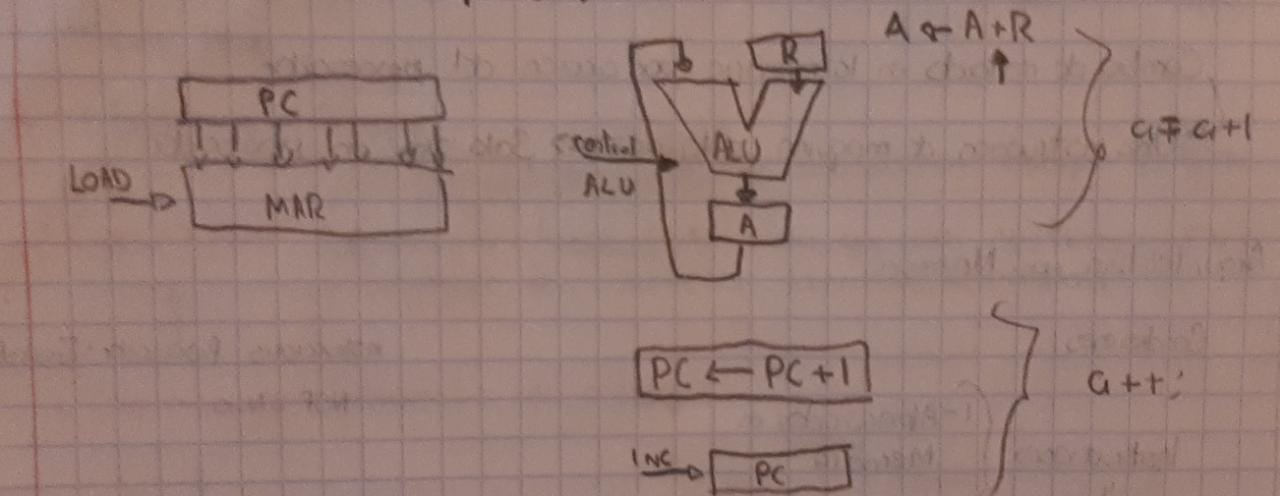 PC
LOAD
MAR
R
A ← A+R
control
ALU
ALU
A
a = a+1
PC ← PC+1
a++;
INC
PC